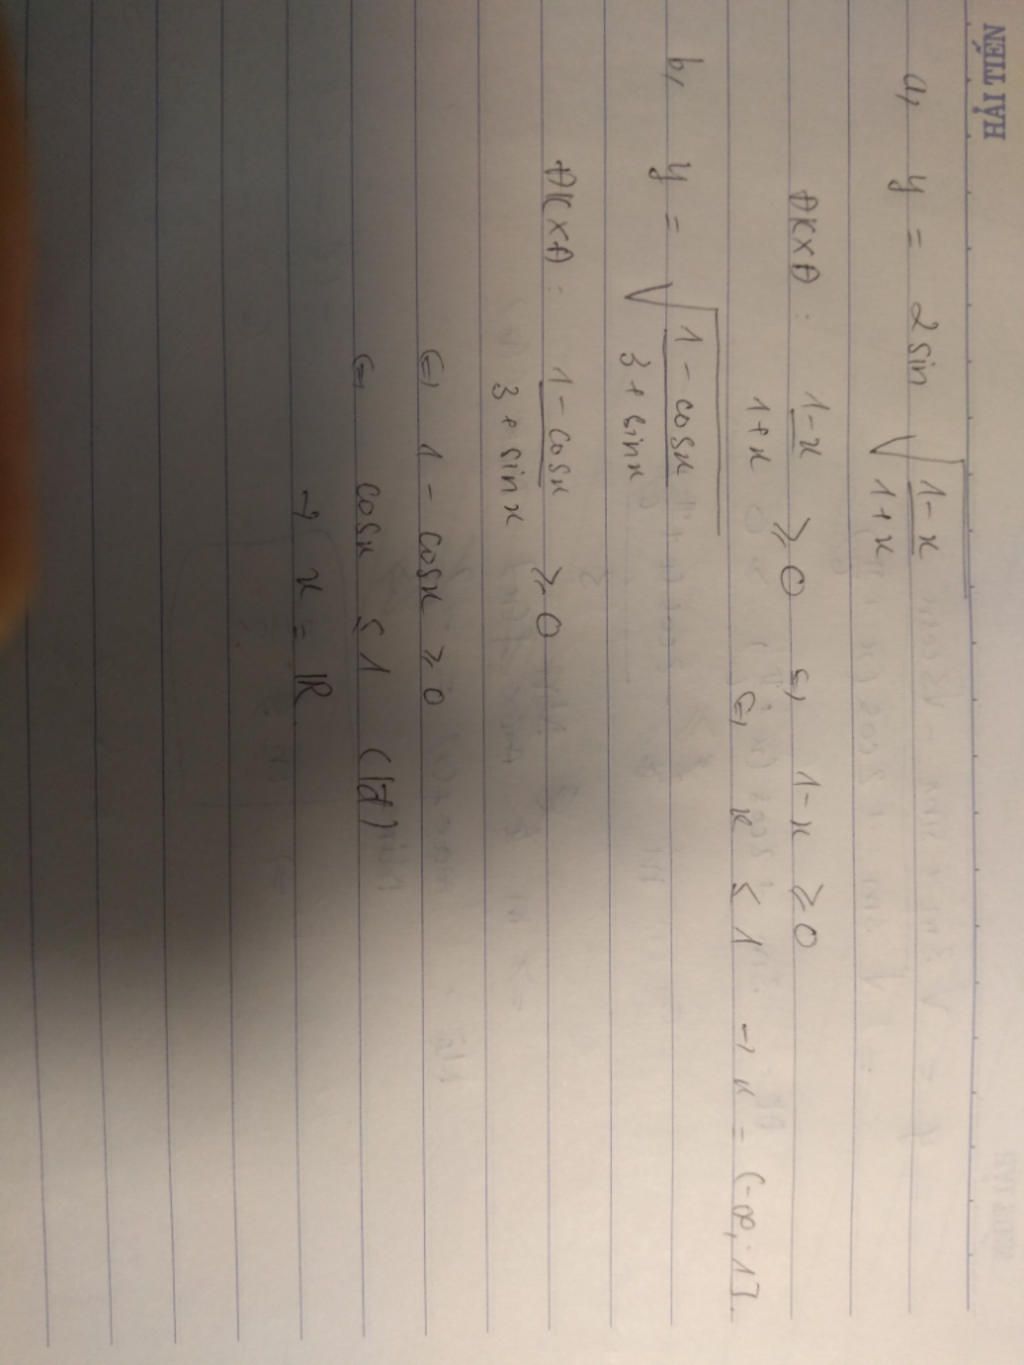 HẢI TIẾN
a, y = 2 sin √((1-x)/(1+x))
ĐKXĐ : (1-x)/(1+x) ≥ 0 ⇔ 1-x ≥ 0
⇔ x ≤ 1 → x = (-∞; 1].
b, y = √((1-cosx)/(3+sinx))
ĐKXĐ : (1-cosx)/(3+sinx) ≥ 0
⇔ 1 - cosx ≥ 0
⇔ cosx ≤ 1 (lđ)
→ x = ℝ